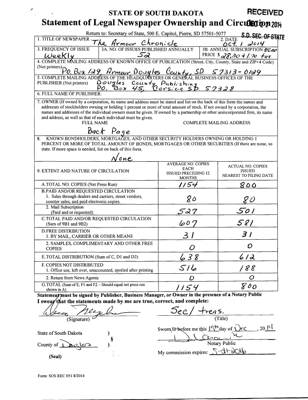 STATE OF SOUTH DAKOTA
RECEIVED
Statement of Legal Newspaper Ownership and Circulation
Return to: Secretary of State, 500 E. Capitol, Pierre, SD 57501-5077
S.D. SEC. OF STATE
1. TITLE OF NEWSPAPER The Armour Chronicle
2. DATE Oct 1 2014
3. FREQUENCY OF ISSUE Weekly
3A. NO. OF ISSUES PUBLISHED ANNUALLY 52
3B. ANNUAL SUBSCRIPTION PRICE $
4. COMPLETE MAILING ADDRESS OF KNOWN OFFICE OF PUBLICATION (Street, City, County, State and (ZIP+4 Code) (Not printers)
P.O. Box 129 Armour Douglas County, SD 57313-0129
5. COMPLETE MAILING ADDRESS OF THE HEADQUARTERS OF GENERAL BUSINESS OFFICES OF THE PUBLISHER (Not printer)
Douglas County Publishing
P.O. Box 45, Corsica SD 57328
6. FULL NAME OF PUBLISHER:
7. OWNER (If owned by a corporation, its name and address must be stated and list on the back of this form the names and addresses of stockholders owning or holding 1 percent or more of total amount of stock. If not owned by a corporation, the names and addresses of the individual owners must be given. If owned by a partnership or other unincorporated firm, its name and address, as well as that of each individual must be given.
FULL NAME
COMPLETE MAILING ADDRESS
Back Page
8. KNOWN BONDHOLDERS, MORTGAGES, AND OTHER SECURITY HOLDERS OWNING OR HOLDING 1 PERCENT OR MORE OF TOTAL AMOUNT OF BONDS, MORTGAGES OR OTHER SECURITIES (If there are none, so state. If more space is needed, list on back of this form.
None
9. EXTENT AND NATURE OF CIRCULATION
AVERAGE NO. COPIES EACH ISSUED PRECEDING 12 MONTHS
ACTUAL NO. COPIES ISSUED NEAREST TO FILING DATE
A. TOTAL NO. COPIES (Net Press Run) 1154 800
B. PAID AND/OR REQUESTED CIRCULATION
1. Sales through dealers and carriers, street vendors, counter sales, and paid electronic copies. 80 80
2. Mail Subscription (Paid and or requested) 527 501
C. TOTAL PAID AND/OR REQUESTED CIRCULATION (Sum of 9B1 and 9B2) 607 581
D. FREE DISTRIBUTION
1. BY MAIL, CARRIER OR OTHER MEANS 31 31
2. SAMPLES, COMPLIMENTARY AND OTHER FREE COPIES 0 0
E. TOTAL DISTRIBUTION (Sum of C, D1 and D2) 638 612
F. COPIES NOT DISTRIBUTED
1. Office use, left over, unaccounted, spoiled after printing 516 188
2. Return from News Agents 0 0
G. TOTAL (Sum of E, F1 and F2 - Should equal net press run shown in A) 1154 800
Statement must be signed by Publisher, Business Manager, or Owner in the presence of a Notary Public
I swear that the statements made by me are true, correct, and complete:
Sec/treas.
(Signature)
(Title)
State of South Dakota
Sworn to before me this 1st day of Dec, 2014
County of Douglas
Notary Public
(Seal)
My commission expires:
Form: SOS REC 051 8/2014